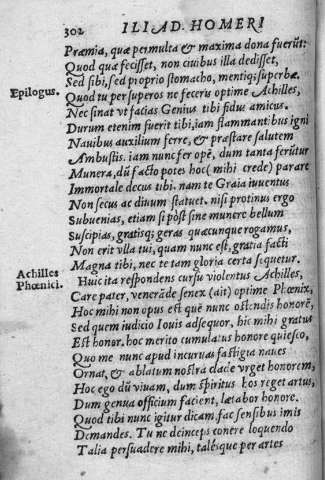 302 ILIAD. HOMERI
Præmia, quæ permulta & maxima dona fuerūt:
Quod quæ fecisset, non ciuibus illa dedisset,
Sed sibi, sed proprio stomacho, mentiq; superbæ.
Epilogus.
Quod tu per superos ne feceris optime Achilles,
Nec sinat vt facias Genius tibi fidus amicus.
Durum etenim fuerit tibi, iam flammantibus igni
Nauibus auxilium ferre, & præstare salutem
Ambustis. iam nunc fer opē, dum tanta ferūtur
Munera, dū facto potes hoc (mihi crede) parare
Immortale decus tibi. nam te Graia iuuentus
Non secus ac diuum statuet. nisi protinus ergo
Subuenias, etiam si pòst sine munere bellum
Suscipias, gratisq; geras quæcunque rogamus,
Non erit vlla tui, quam nunc est, gratia facti
Magna tibi, nec te tam gloria certa sequetur.
Achilles
Phœnici.
Huic ita respondens cursu violentus Achilles,
Care pater, venerāde senex (ait) optime Phœnix,
Hoc mihi non opus est quē nunc ostendis honorē,
Sed quem iudicio Iouis adsequor, hic mihi gratus
Est honor. hoc merito cumulatus honore quiesco.
Quo me nunc apud incuruas fastigia naues
Ornat, & ablatum nostra de clade vrget honorem,
Hoc ego dū viuam, dum spiritus hos reget artus,
Dum genua officium facient, lætabor honore.
Quod tibi nunc igitur dicam, fac sensibus imis
Demandes. Tu ne deinceps conere loquendo
Talia persuadere mihi, talésque per artes